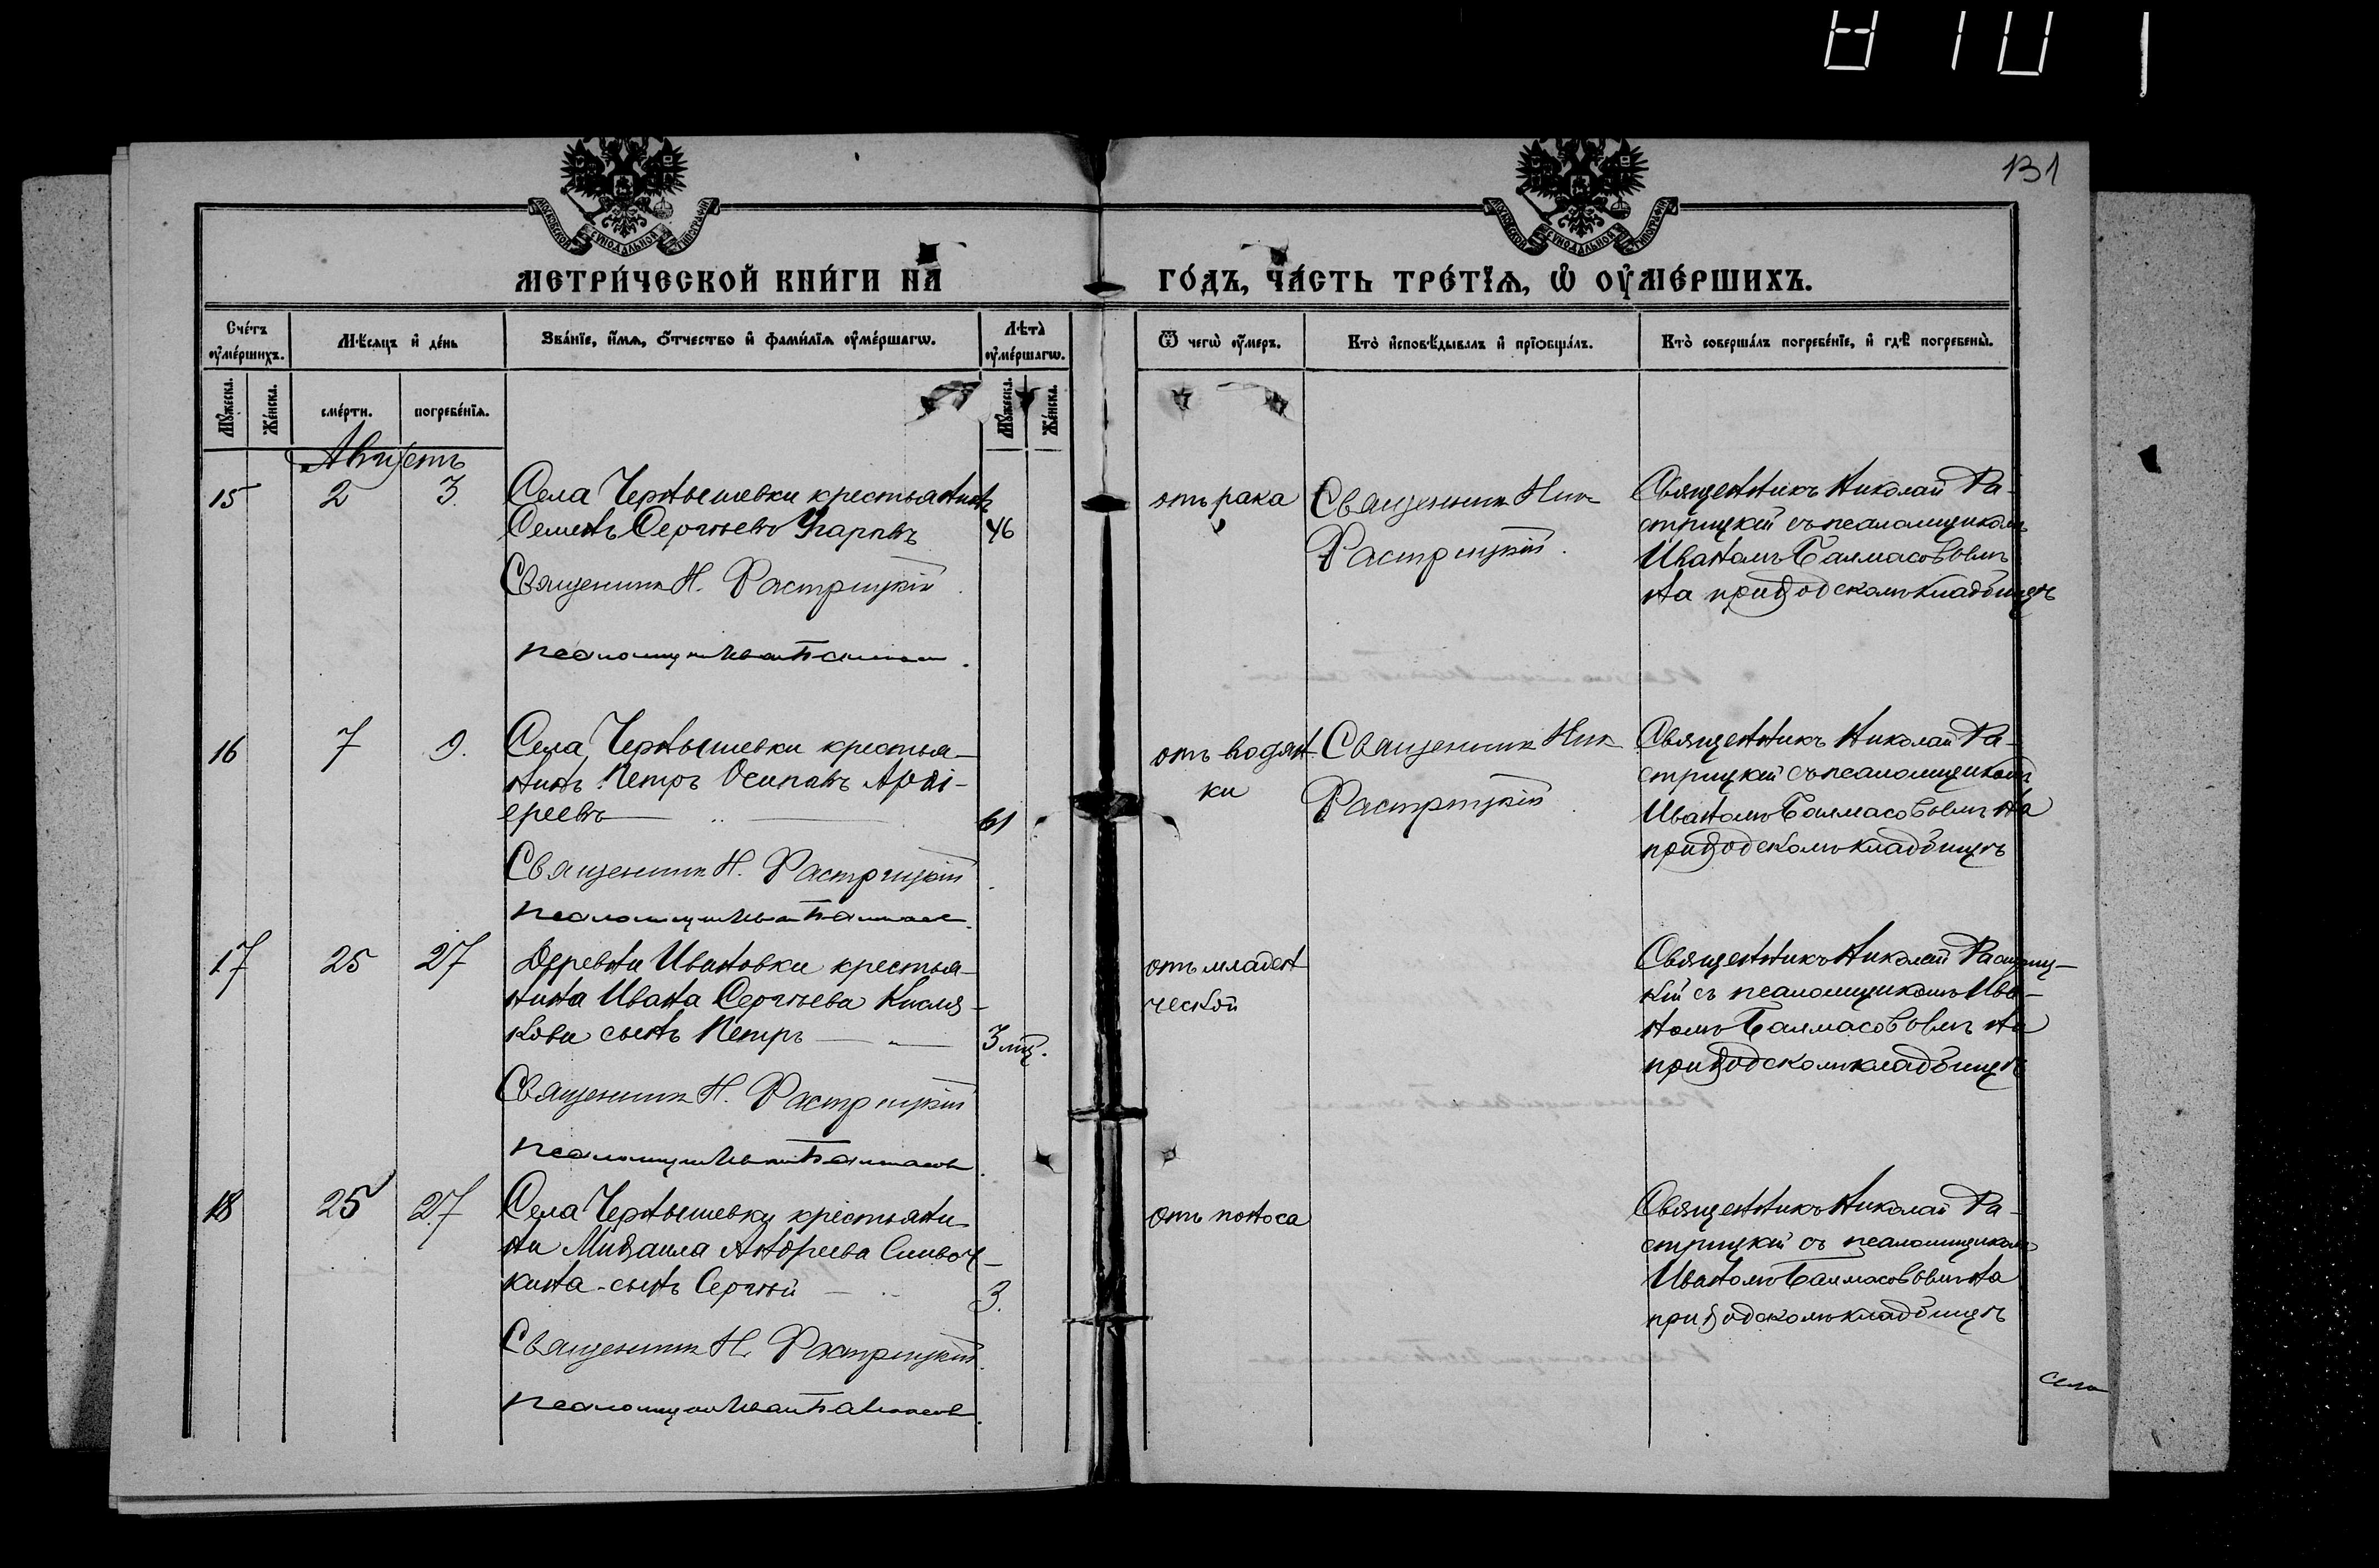 131
МОСКОВСКОЙ СѴНОДАЛЬНОЙ ТИПОГРАФІИ
МОСКОВСКОЙ СѴНОДАЛЬНОЙ ТИПОГРАФІИ
МЕТРИ́ЧЕСКОЙ КНИ́ГИ НА̀ ГО́ДЪ, ЧА́СТЬ ТРЕ́ТЇѦ, Ѡ҆ ОУ҆МЕ́РШИХЪ.
Сче́тъ оу҆ме́ршихъ.
Мѣ́сѧцъ и҆ де́нь
Зва́нїе, и҆́мѧ, ѻ҆́тчество и҆ фами́лїѧ оу҆ме́ршагѡ.
Лѣ̀та оу҆ме́ршагѡ.
Ѿ чегѡ̀ оу҆́меръ.
Кто̀ и҆сповѣ́дывалъ и҆ прїѻбща́лъ.
Кто̀ соверша́лъ погребе́нїе, и҆ гдѣ̀ погребены̀.
Мꙋ́жеска.
Же́нска.
сме́рти.
погребе́нїѧ.
Мꙋ́жеска.
Же́нска.
Августъ
15 2 3. Села Чернышевки крестьянинъ
Семенъ Сергѣевъ 46
Священник Н. Растрицкій
псаломщик Иван Балмасов
отъ рака
Священник Ник
Растрицкій.
Священникъ Николай Ра-
стрицкій съ псаломщикомъ
Иваномъ Балмасовымъ
на приходскомъ кладбищѣ
16 7 9. Села Чернышевки крестья-
нинъ Петръ Осиповъ Архі-
ереевъ 61
Священник Н. Растрицкій
псаломщик Иван Балмасов
отъ водян
ки
Священник Ник
Растрицкій
Священникъ Николай Ра-
стрицкій съ псаломщикомъ
Иваномъ Балмасовымъ на
приходскомъ кладбищѣ
17 25 27 Деревни Ивановки крестья-
нина Ивана Сергѣева Кисля-
кова сынъ Петръ 3 мц.
Священник Н. Растрицкій
псаломщик Иван Балмасов
отъ младен
ческой
Священникъ Николай Растриц-
кій съ псаломщикомъ Ива-
номъ Балмасовымъ на
приходскомъ кладбищѣ
18 25 27 Села Чернышевки крестьяни
на Михаила Андреева Сливоч-
кина сынъ Сергѣй 3.
Священник Н. Растрицкій
псаломщик Иван Балмасов
отъ поноса
Священникъ Николай Ра-
стрицкій съ псаломщикомъ
Иваномъ Балмасовымъ на
приходскомъ кладбищѣ